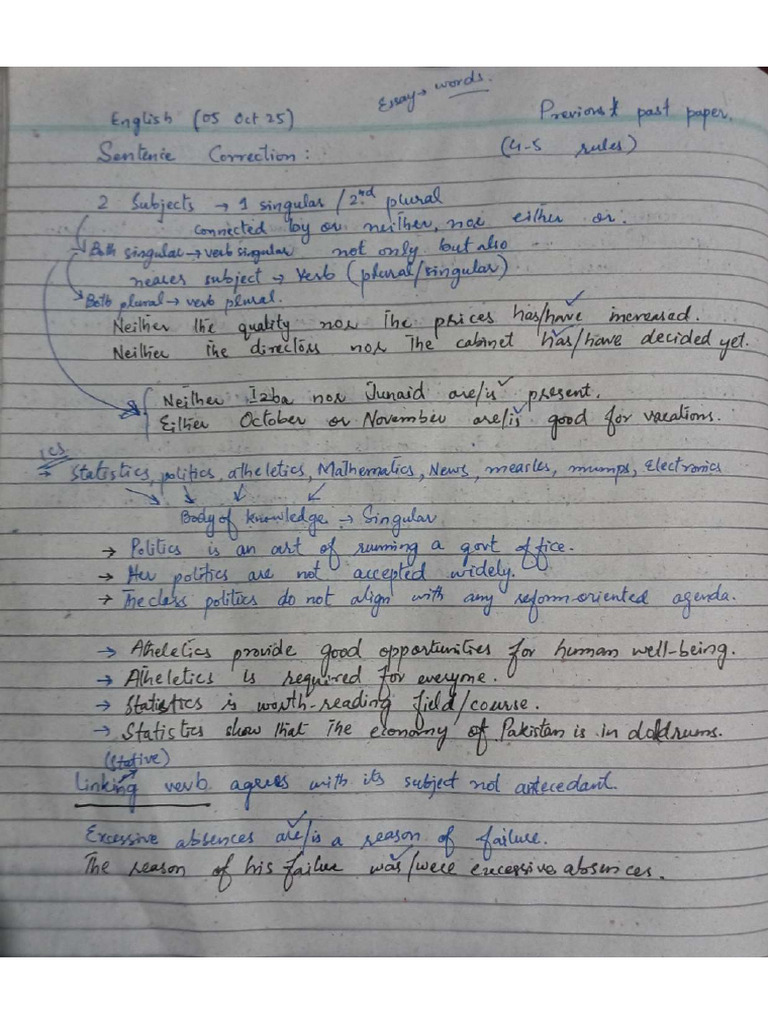 Essay → words.
English (05 Oct 25)
Previous & past paper.
Sentence Correction :
(4-5 rules)
2 Subjects → 1 singular / 2nd plural
connected by or neither, nor either or.
Both singular → verb singular not only but also
nearer subject → Verb (plural/singular)
Both plural → verb plural.
Neither the quality nor the prices has/have increased.
Neither the directors nor the cabinet has/have decided yet.
Neither Izba nor Junaid are/is present.
Either October or November are/is good for vacations.
ics
→ Statistics, politics, atheletics, Mathematics, News, measles, mumps, Electronics
Body of knowledge → Singular
→ Politics is an art of running a govt office.
→ Her politics are not accepted widely.
→ The class politics do not align with any reform-oriented agenda.
→ Atheletics provide good opportunities for human well-being.
→ Atheletics is required for everyone.
→ Statistics is worth-reading field/course.
→ Statistics show that the economy of Pakistan is in doldrums.
(Stative)
Linking verb agrees with its subject not antecedant.
Excessive absences are/is a reason of failure.
The reason of his failure was/were excessive absences.